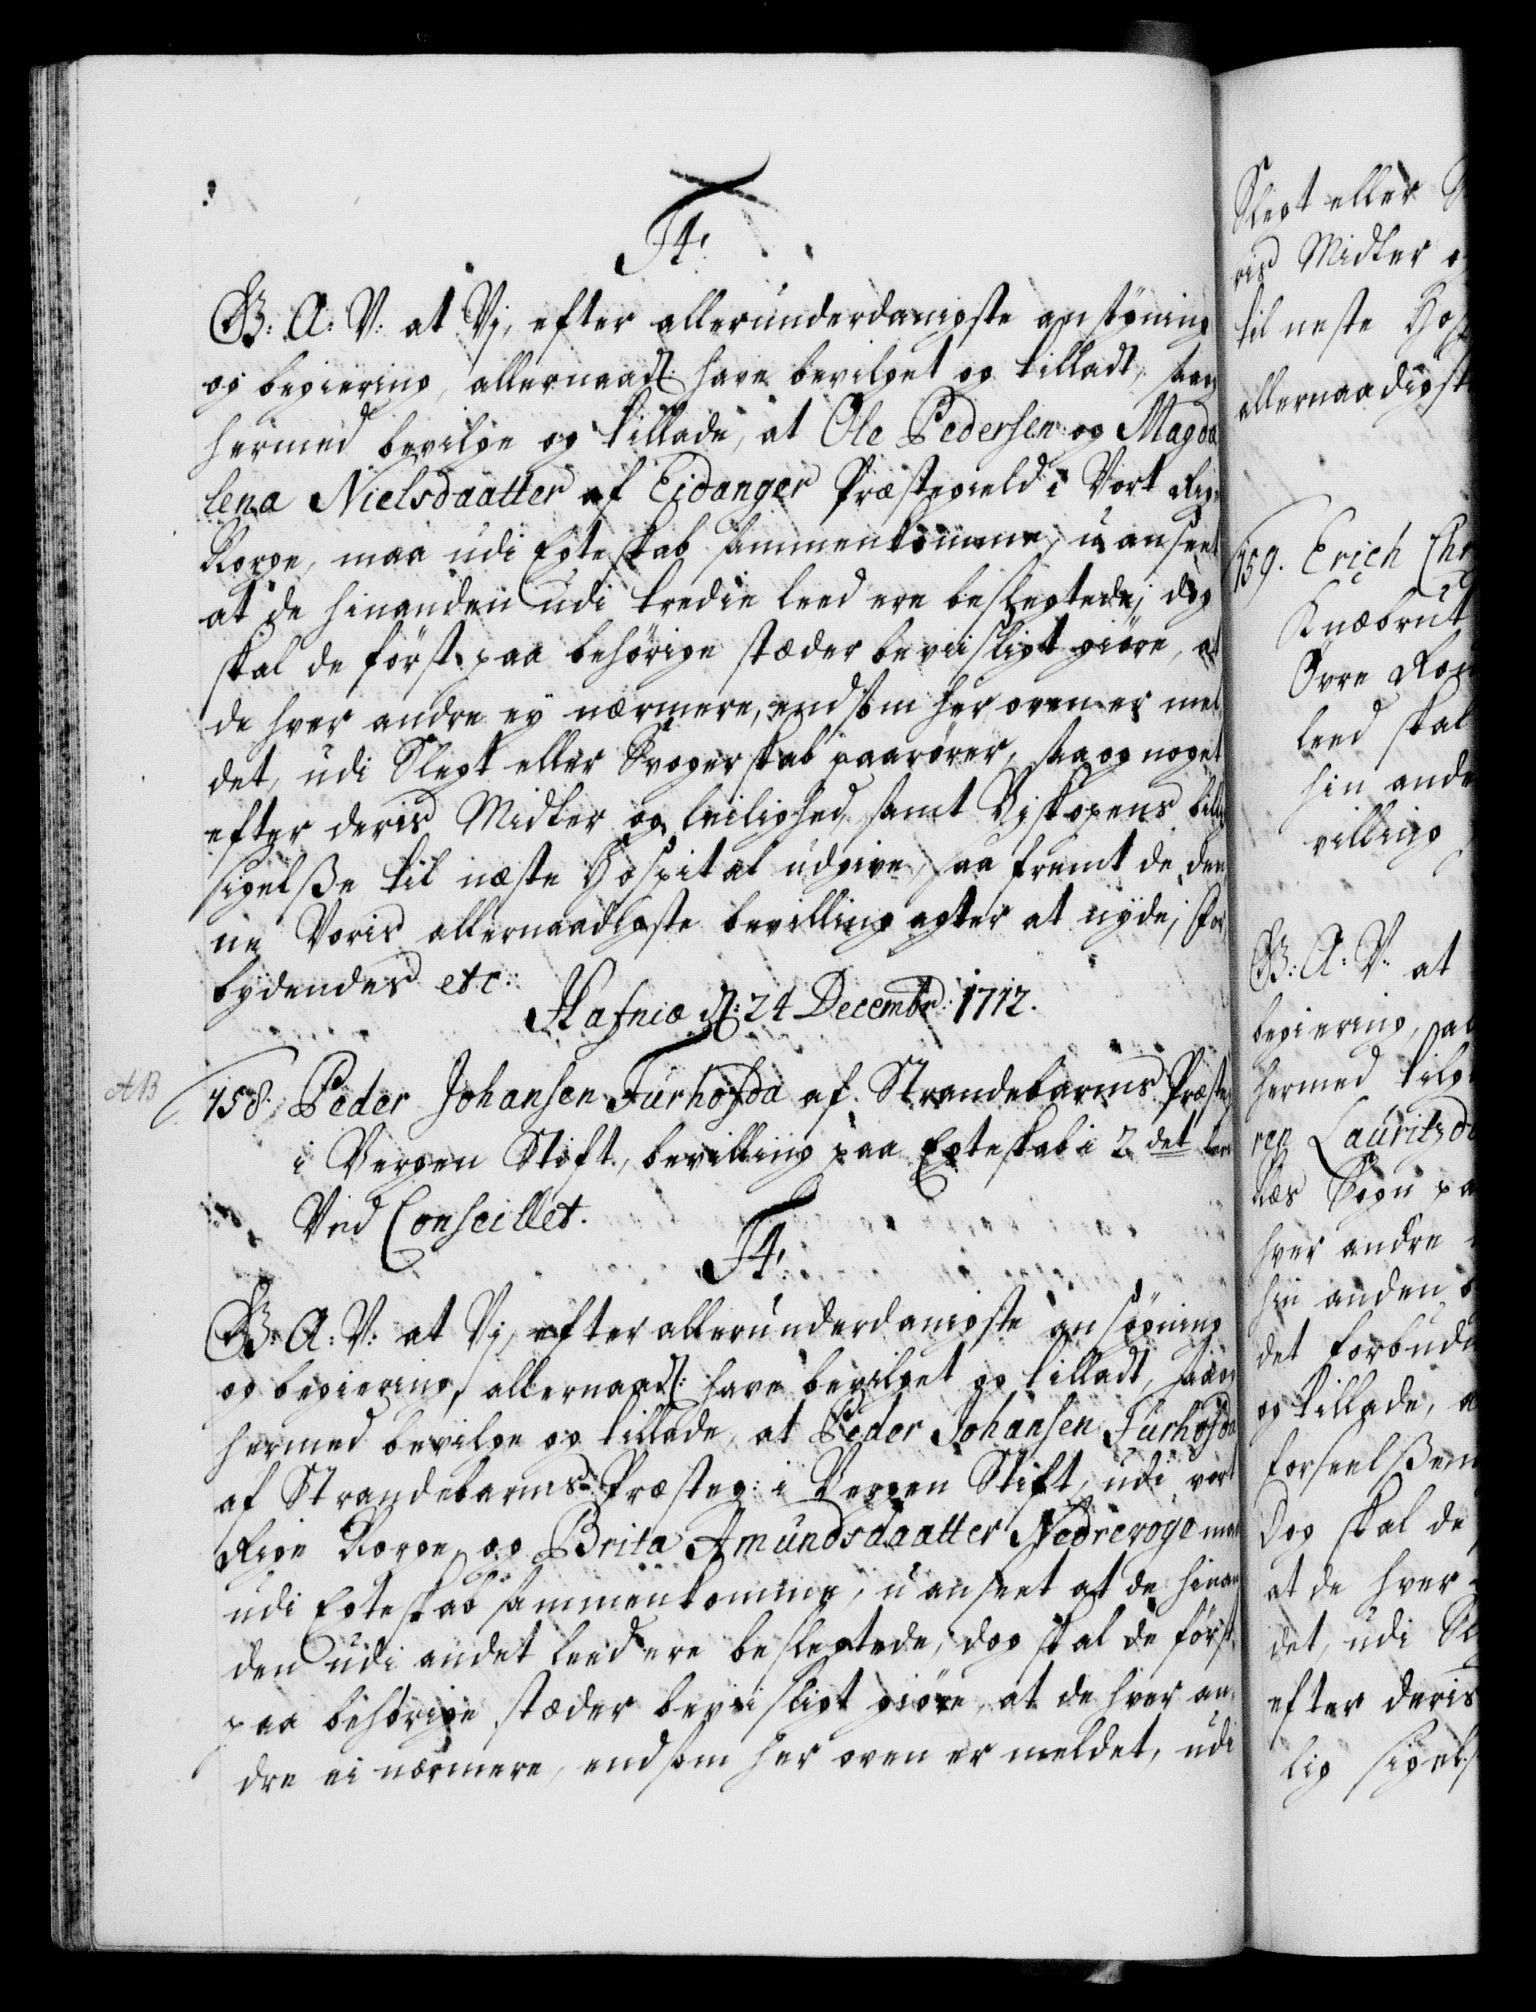 F4.
G: A: V: at Vj, efter allerunderdanigste ansøgning
og begiering, allernaadl: have bevilget og tilladt, saa
hermed bevilge og tillade, at Ole Pedersen og Magda
lena Nielsdaatter af Eidanger Præstegield i Vort Rige
Norge, maa udi Egteskab sammenkomme, uanseet
at de hinanden udi tredie leed ere beslegtede, dog
skal de först paa behörige stæder beviisligt giöre, at
de hver andre ey nærmere, end som her oven er mel
det, udi Slegt eller Svogerskab paarörer, saa og noget
efter deris Midler og leilighed, samt Biskopens bille
sigelsse til næste Hospital udgive, saa fremt de den
ne Voris allernaadigste bevilling agter at nyde, For
bydendes etc:
Hafniæ d: 24 Decembr: 1712.
AB
158. Peder Johansen Furhofda af Strandebarms Præsteg
i Bergen Stift, bevilling paa Egteskab i 2det leed
Ved Conseillet.
F4.
G: A: V: at Vj, efter allerunderdanigste ansøgning
og begiering, allernaadl: have bevilget og tilladt, saa
hermed bevilge og tillade, at Peder Johansen Furhofda
af Strandebarms Præsteg: i Bergen Stift, udi vort
Rige Norge, og Brita Amundsdaatter Nedrevogo maa
udi Egteskab sammenkomme, uanseet at de hinan
den udi andet leed ere beslegtede, dog skal de först
paa behörige stæder beviisligt giöre, at de hver an
dre ei nærmere, end som her oven er meldet, udi
Slegt eller
ris Midler
til neste Hosp
allernaadigst
159. Erich Chr
Knæbrut
Övre
leed skal
hin ande
villing
G: A: V: at
begiering,
hermed
ren Lauritzd
Næs Sogn pa
hver andre
hin anden
det forbud
og tillade, a
forseelssen
Dog skal de
at de hver
det, udi Sl
efter deris
lig sigels